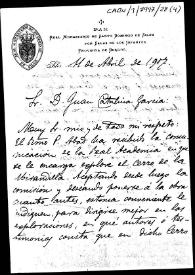 PAX
REAL MONASTERIO DE SANTO DOMINGO DE SILOS
POR SALAS DE LOS INFANTES
PROVINCIA DE BURGOS
11 de Abril de 1907
Sr. D. Juan Catalina García
Muy Sr. mío y de todo mi respeto:
El Rmo P. Abad ha recibido la comu-
nicación de la Real Academia en que
se le encarga explorar el cerro de la
Mirandilla. Aceptando desde luego la
comisión y deseando ponerse á la obra
cuanto antes, estima conveniente le
indiquen, para dirigirse mejor en las
exploraciones, en qué autores ó tes-
timonios consta que en dicho Cerro